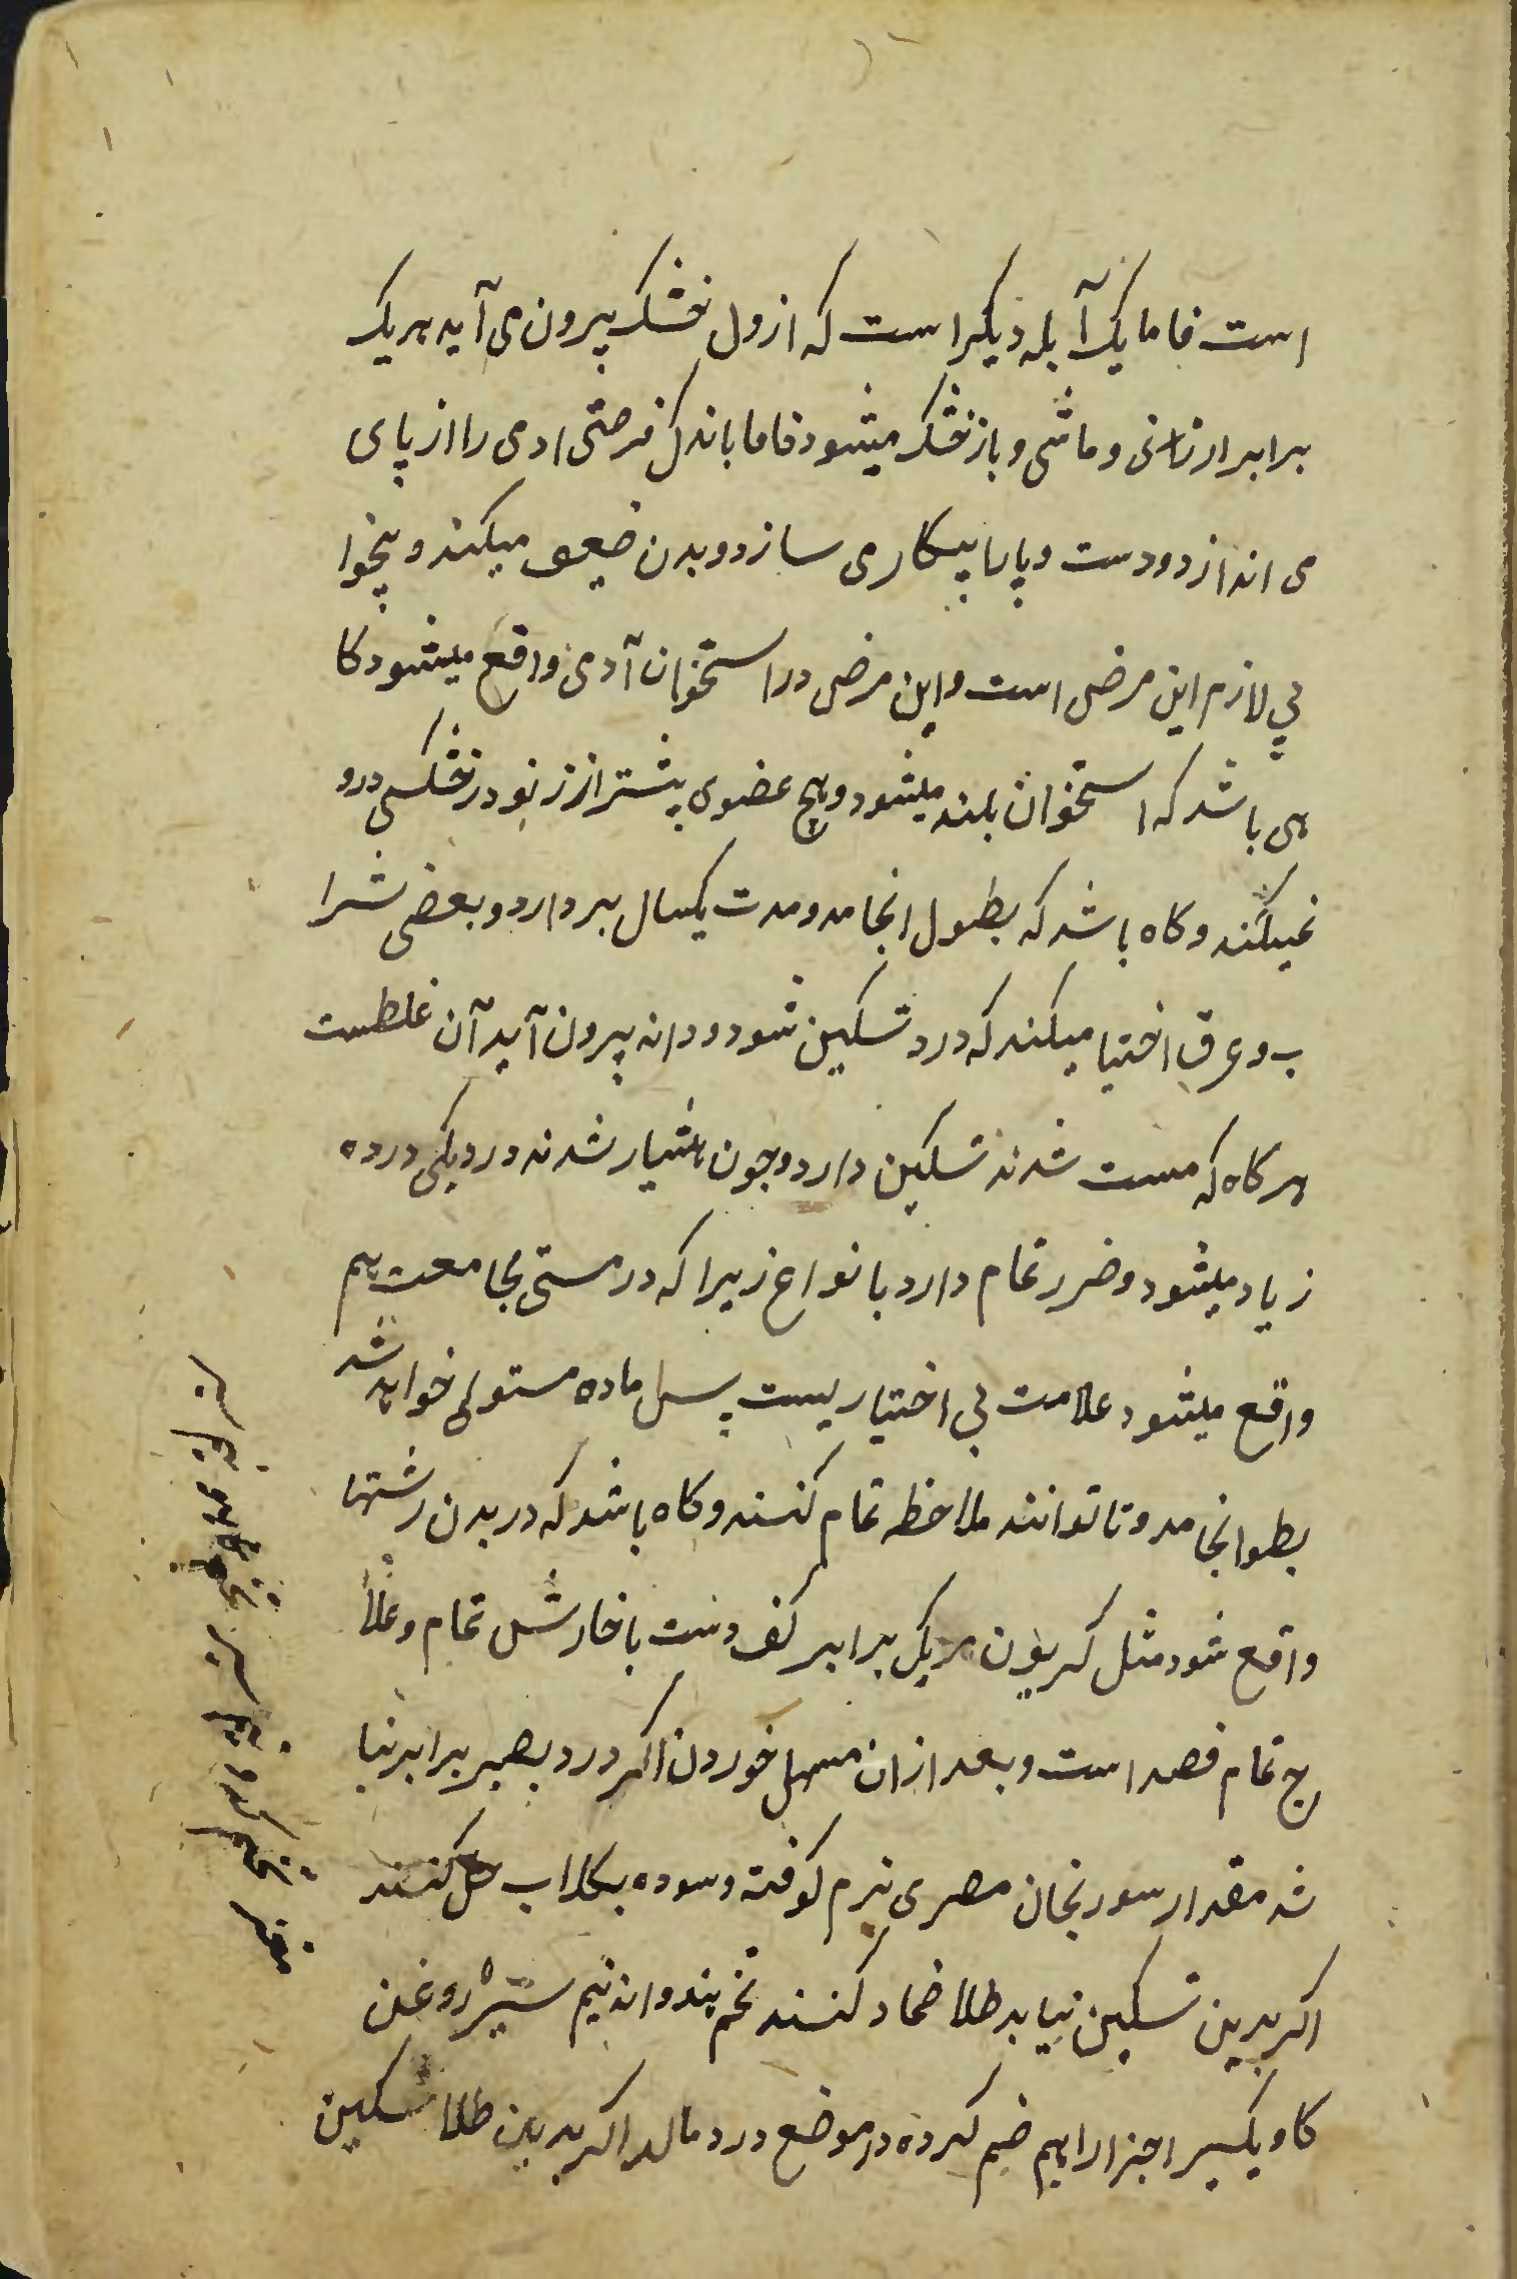 است فاما یک آبله دیکر است که ازول خشک بیرون می آید هر یک
برابر ارزنی و ماشی و باز خشک میشود فاما باندک فرصتی ادمی را از پای
می اندازد و دست و پا را بیکار می سازد و بدن ضعیف میکند و بیخوا
بی لازم این مرض است و این مرض در استخوان آدمی واقع میشود کا
هی باشد که استخوان بلند میشود و هیچ عضوی بیشتر از زنو در خشکی درو
نمیکند و کاه باشد که بطول انجامد و مدت یکسال بر دارد و بعضی شرا
ب و عرق اختیا میکند که درد تسکین شود و دانه بیرون آید آن غلطست
هر کاه که مست شدند تسکین دارد و چون هشیار شدند درد یکی در ده
زیاد میشود و ضرر تمام دارد بانواع زیرا که در مستی مجامعت هم
واقع میشود علامت بی اختیاریست پس ماده مستولی خواهد شد
بطوانجامد و تا توانند ملاحظه تمام کنند و کاه باشد که در بدن رشتها
واقع شود مثل کریون هر یک برابر کف دست با خارش تمام و علا
ج تمام فصد است و بعد ازان مسهل خوردن اکر درد بصبر برابر نبا
شد مقدار سورنجان مصری نرم کوفته و سوده بکلاب حل کنند
اکر بدین تسکین نیابد طلا ضماد کنند تخم هندوانه نیم سیر روغن
کاو یکسیر اجزا را بهم ضم کرده در موضع درد مالد اکر بدین طلا تسکین